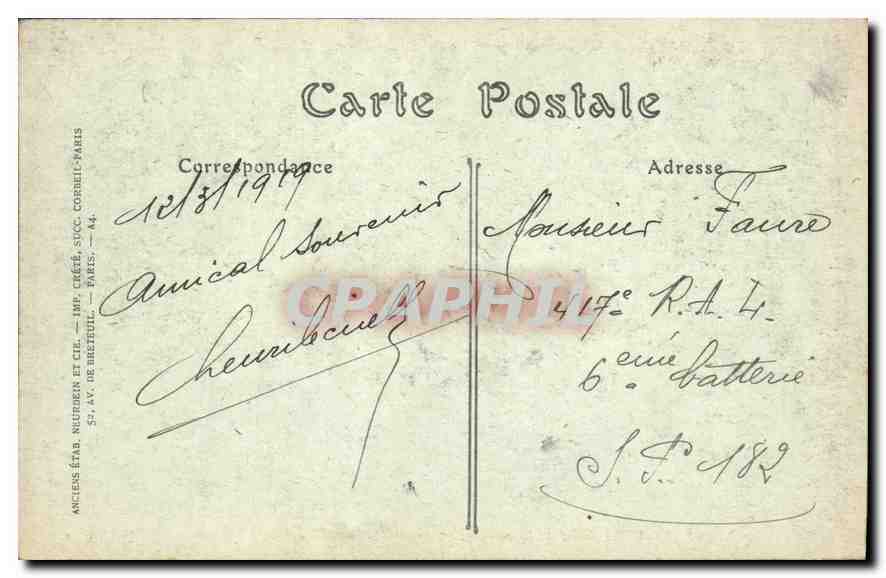 Carte Postale
Correspondance
12/3/1919
Amical Souvenir
Adresse
Monsieur Faure
417e R.A.L.
6eme batterie
S.P. 182
ANCIENS ÉTAB. NEURDEIN ET CIE. — IMP. CRÉTÉ, SUCC. CORBEIL-PARIS
52, AV. DE BRETEUIL. — PARIS. — A4.
CPAPHIL